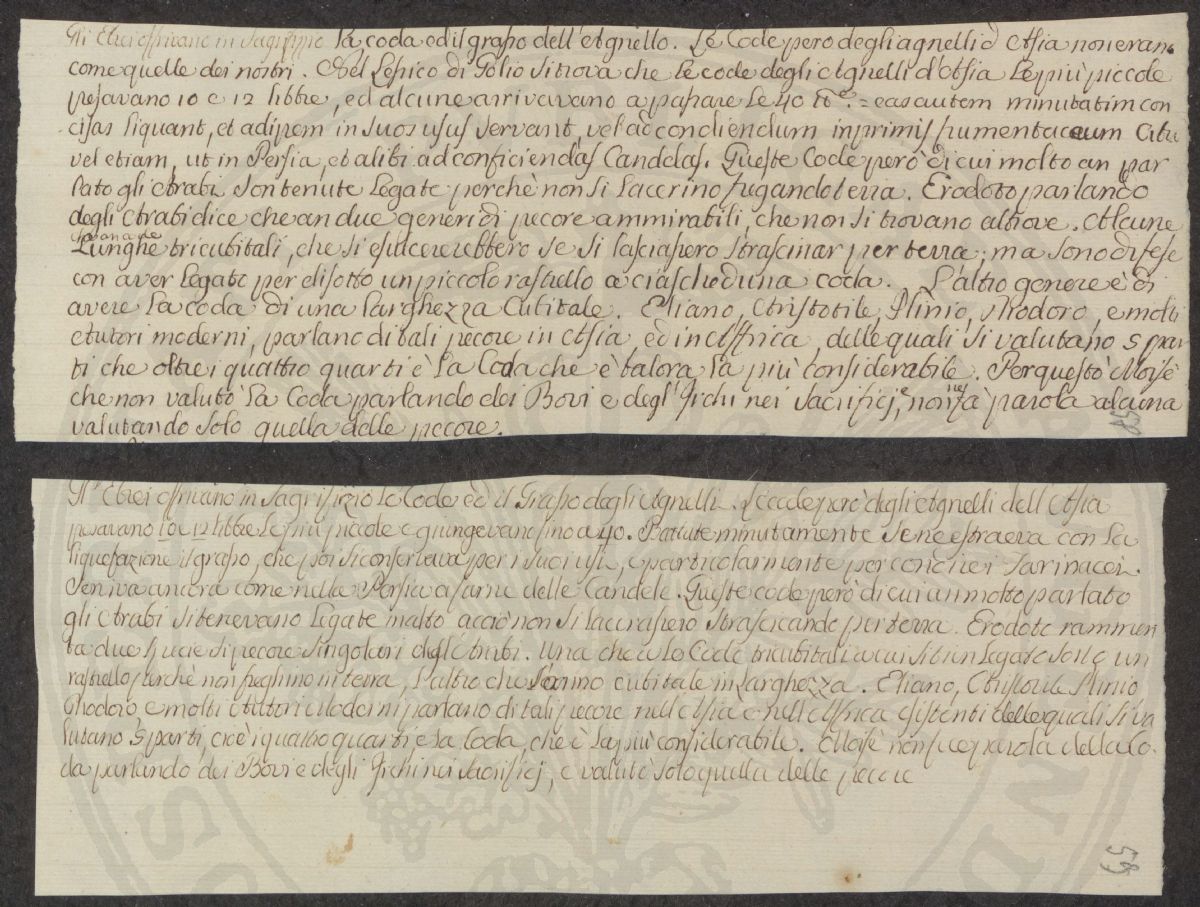 Gli Ebrei offrivano in Sagrifizio la coda ed il grasso dell'Agnello. Le Code pero degli agnelli d'Asia non eran
come quelle dei nostri. Nel Lessico di Golio si trova che le code degli Agnelli d'Asia le più piccole
pesavano 10 e 12 libbre, ed alcune arrivavano a passare le 40 = eas autem minutatim con
cisas liquant, et adipem in suos usus servant, vel ad condiendum inprimis frumentaceum
vel etiam, ut in Persia, et alibi ad conficiendas Candelas. Queste Code però di cui molto an par
lato gli Arabi son tenute legate perchè non si lacerino fregando terra. Erodoto parlando
degli Arabi dice che an due generi di pecore ammirabili, che non si trovano altrove. Alcune
Lunghe tricubitali, che si esulcererebbero se si lasciassero strascinar per terra; ma sono difese
con aver legato per disotto un piccolo rastello a ciascheduna coda. L'altro genere è di
avere la coda di una larghezza Cubitale. Eliano, Aristotile, Plinio, Rhodoro, e molti
Autori moderni, parlano di tali pecore in Asia, ed in Affrica, delle quali si valutano 5 par
ti che oltre i quattro quarti è la Coda che è talora la più considerabile. Per questo Moisè
che non valutò la Coda parlando dei Bovi e degl'Irchi nei Sacrifici, non fà parola alcuna
valutando solo quella delle pecore.
85
Gl'Ebrei offrivano in Sagrifizio le Code ed il Grasso degli Agnelli. Le code però degli Agnelli dell'Asia
pesavano 10 e 12 libbre le più piccole e giungevano sino a 40. Battute minutamente se ne estraeva con la
liquefazione il grasso, che poi si conservava per i suoi usi, e particolarmente per conci nei Farinacei.
Serviva ancora come nella Persia a farne delle Candele. Queste code però di cui an molto parlato
gli Arabi si tenevano legate in alto acciò non si lacerassero strascicando per terra. Erodoto rammen
ta due specie di pecore singolari degli Arabi. Una che à le Code tricubitali a cui si tien legato sotto un
rastello perchè non freghino in terra, l'altro che l'anno cubitale in larghezza. Eliano, Aristotile Plinio
Rhodoro e molti Autori Moderni parlano di tali pecore nell'Asia e nell'Affrica esistenti delle quali si va
lutano 5 parti, cioè i quattro quarti e la Coda, che è la più considerabile. Moisè non fece parola della Co
da parlando dei Bovi e degli Irchi nei Sacrificj, e valutò solo quella delle pecore
85